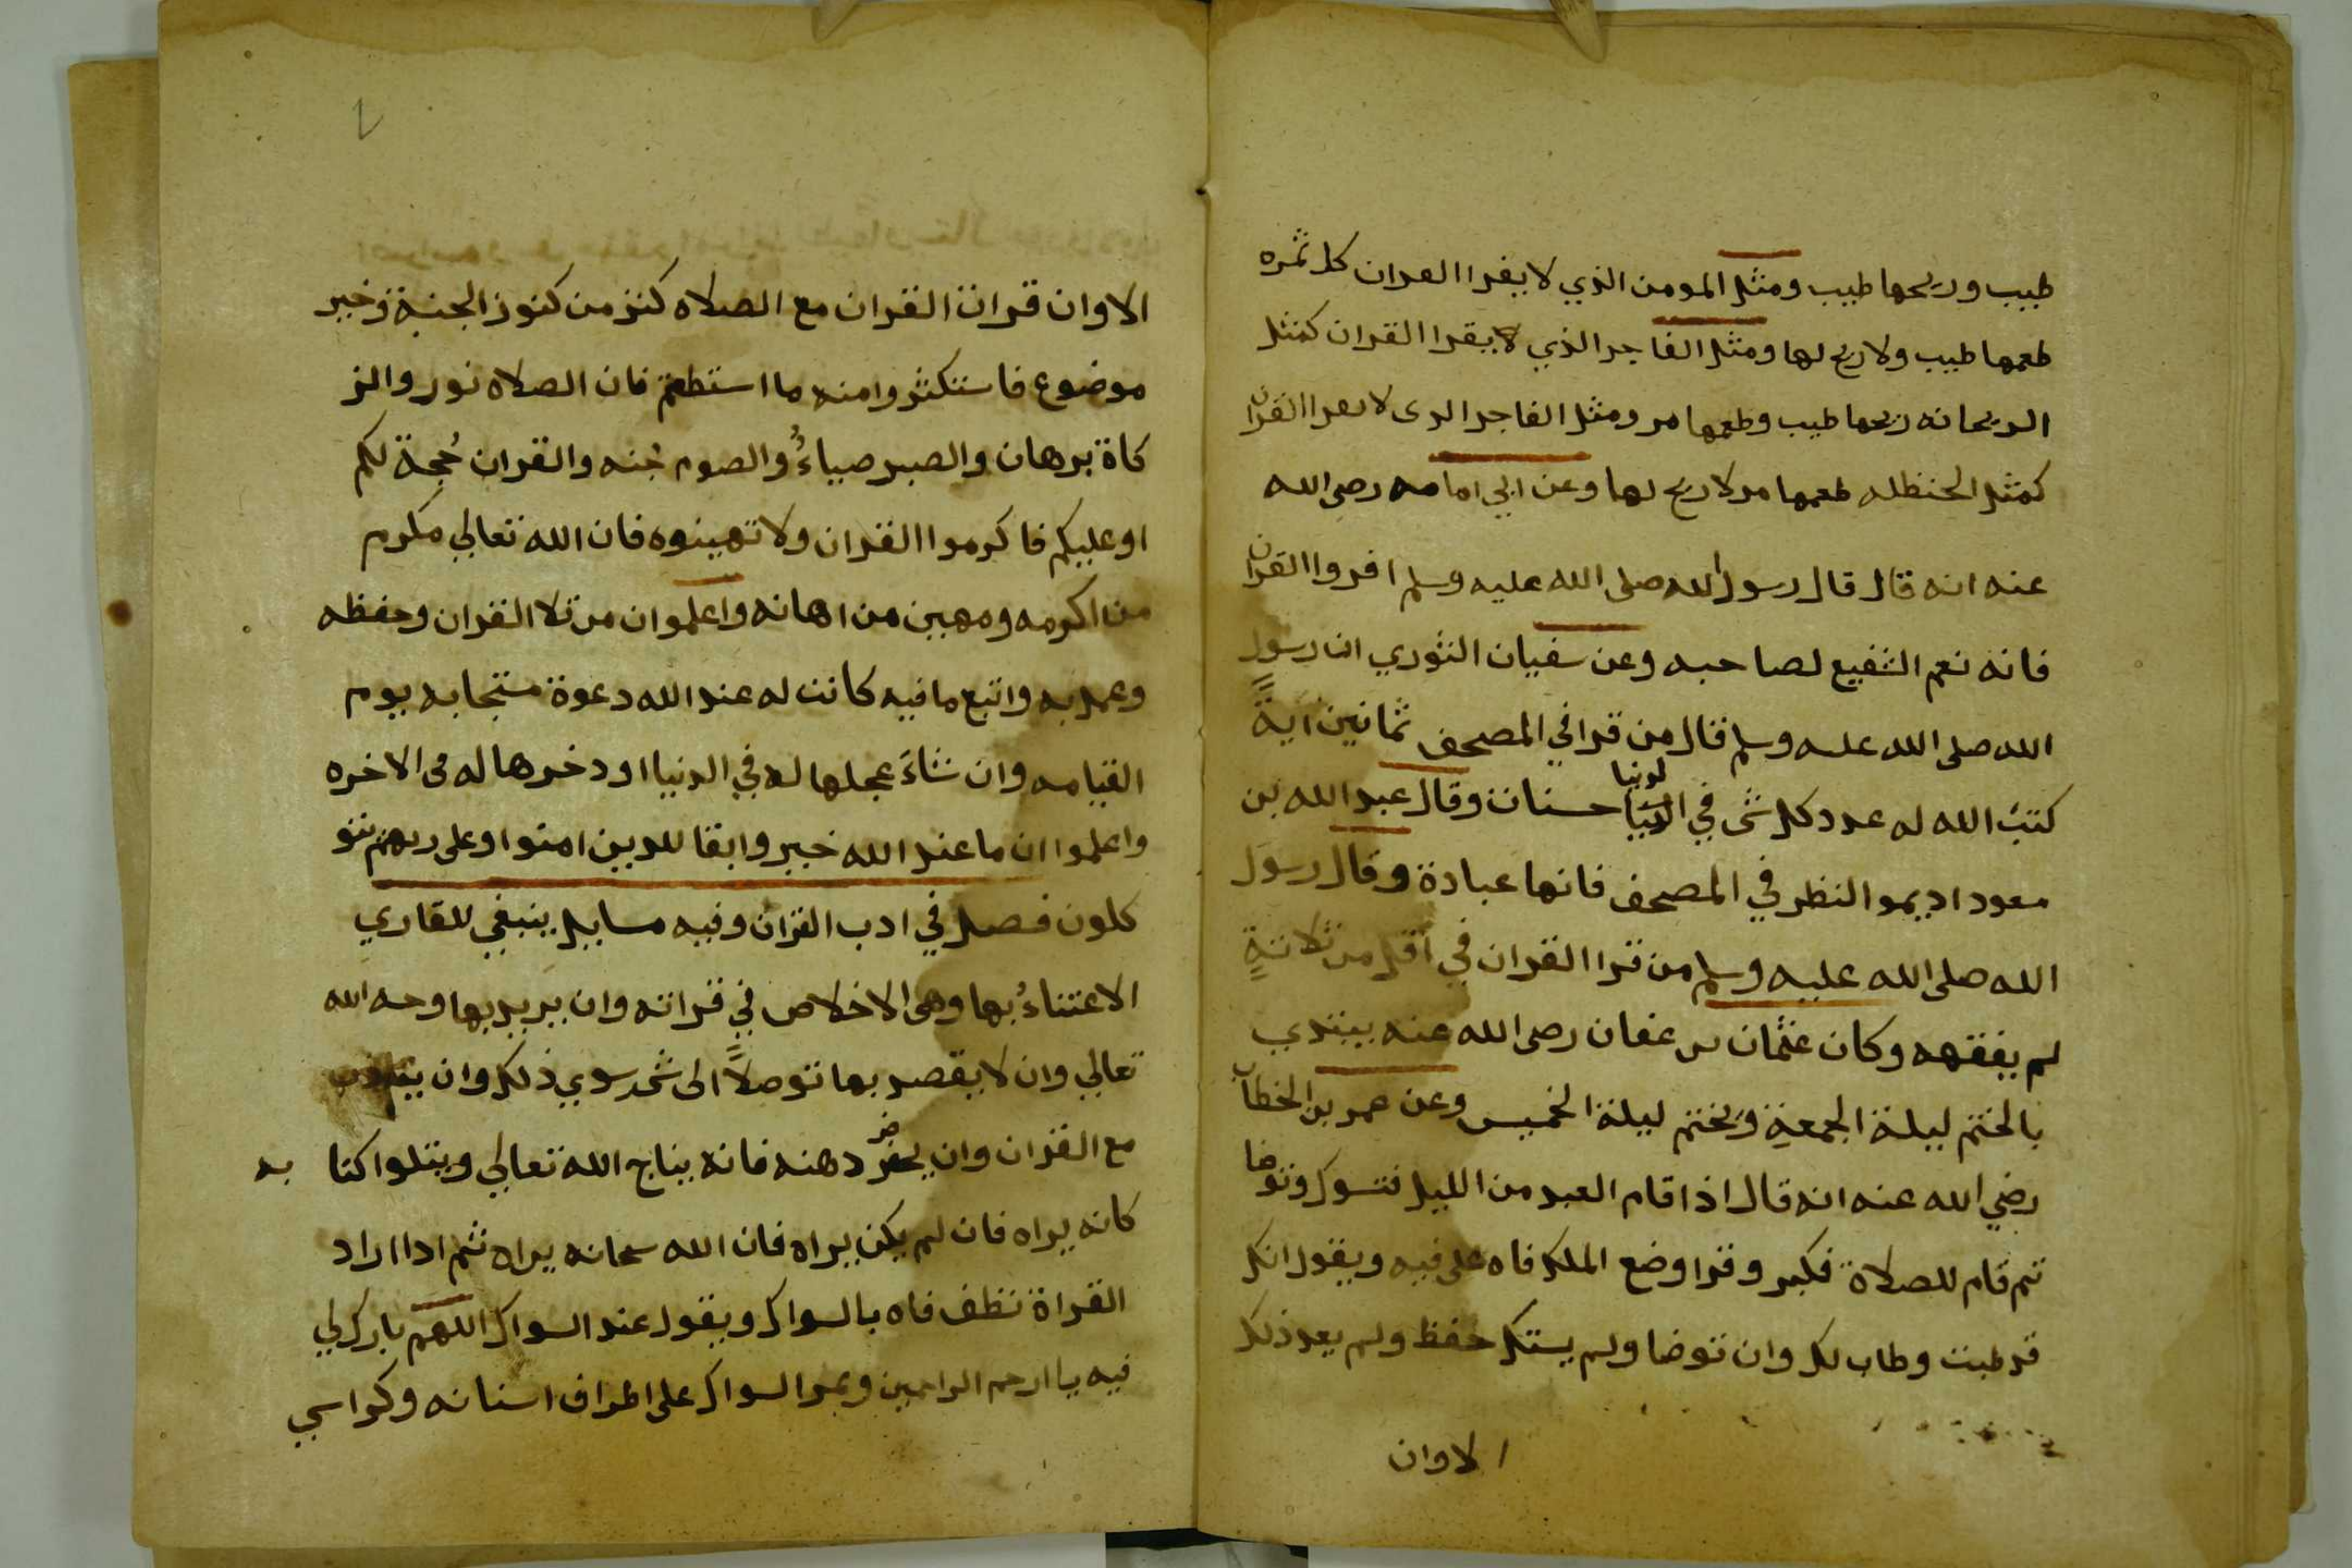 طيب وريحها طيب ومثل المومن الذي لا يقرا القران كل ثمره
طعمها طيب ولا ريح لها ومثل الفاجر الذي لا يقرا القران كمثل
الريحانه ريحها طيب وطعمها مر ومثل الفاجر الدى لا يقرا القران
كمثل الحنظله طعمها مر لا ريح لها وعن ابي امامه رضى الله
عنه انه قال قال رسول الله صلى الله عليه وسلم اقروا القران
فانه نعم الشفيع لصاحبه وعن سفيان الثوري ان رسول
الله صلى الله عليه وسلم قال من قرا في المصحف ثمانين اية
كتب الله له عدد كل شى في الدنيا لدنيا حسنات وقال عبد الله بن
معود اديمو النظر في المصحف فانها عبادة وقال رسول
الله صلى الله عليه وسلم من قرا القران في اقل من ثلاثة
لم يفقهه وكان عثمان بن عفان رضى الله عنه يبتدي
بالختم ليلة الجمعة ويختم ليلة الخميس وعن عمر بن الخطاب
رضي الله عنه انه قال اذا قام العبد من الليل فتسوك وتوضا
ثم قام للصلاة فكبر وقرا وضع الملك فاه على فيه ويقول اتل
قد طبت وطاب لك وان توضا ولم يستك حفظ ولم يعد ذلك
الاوان
الاوان قراة القران مع الصلاه كنز من كنوز الجنة وخير
موضوع فاستكثروا منه ما استطعتم فان الصلاه نور والز
كاة برهان والصبر ضياءُ والصوم جُنه والقران حُجة لكم
او عليكم فاكرموا القران ولا تهينوه فان الله تعالي مكرم
من اكرمه ومهين من اهانه واعلموا ان من تلا القران وحفظه
وعمل به واتبع ما فيه كانت له عند الله دعوة مستجابه يوم
القيامه وان شاءَ عجلها له في الدنيا او دخرها له فى الاخره
واعلموا ان ما عند الله خير وابقا للدين امنوا وعلى ربهم يتو
كلون فصل في ادب القران وفيه مسايل ينبغي للقاري
الاعتناءُ بها وهى الاخلاص في قراته وان يريد بها وجه الله
تعالي وان لا يقصد بها توصلاً الى شى سوي ذلك وان يتادب
مع القران وان يحضر دهنه فانه يناج الله تعالي ويتلوا كتا به
كانه يراه فان لم يكن يراه فان الله سبحانه يراه ثم ادا اراد
القراة نظف فاه بالسواك ويقول عند السواك اللهم بارك لي
فيه يا ارحم الراحمين ويمر السواك على اطراف اسنانه وكراسي